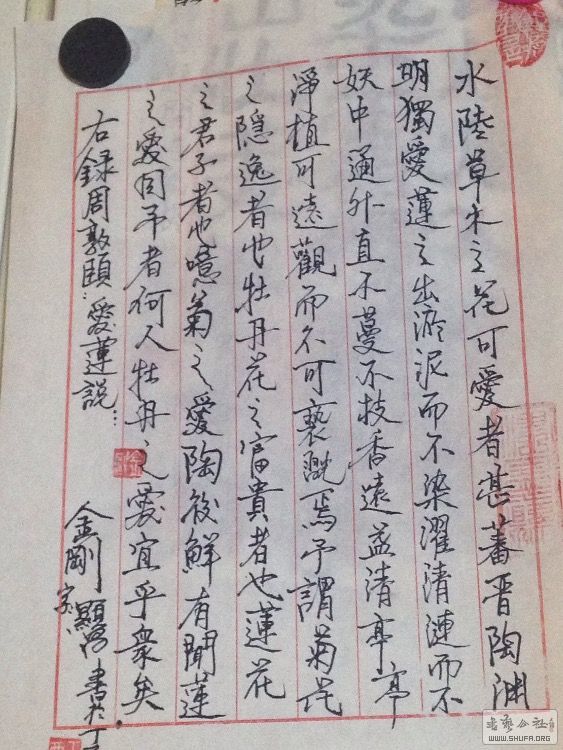 水陸草木之花可愛者甚蕃晉陶渊
明獨愛蓮之出淤泥而不染濯清漣而不
妖中通外直不蔓不枝香遠益清亭亭
淨植可遠觀而不可褻翫焉予謂菊花
之隐逸者也牡丹花之富貴者也蓮花
之君子者也噫菊之愛陶後鮮有聞蓮
之愛同予者何人牡丹之愛宜乎衆矣
右録周敦頤:愛蓮説:
金剛 書於丁
書藝公社
WWW.SHUFA.ORG